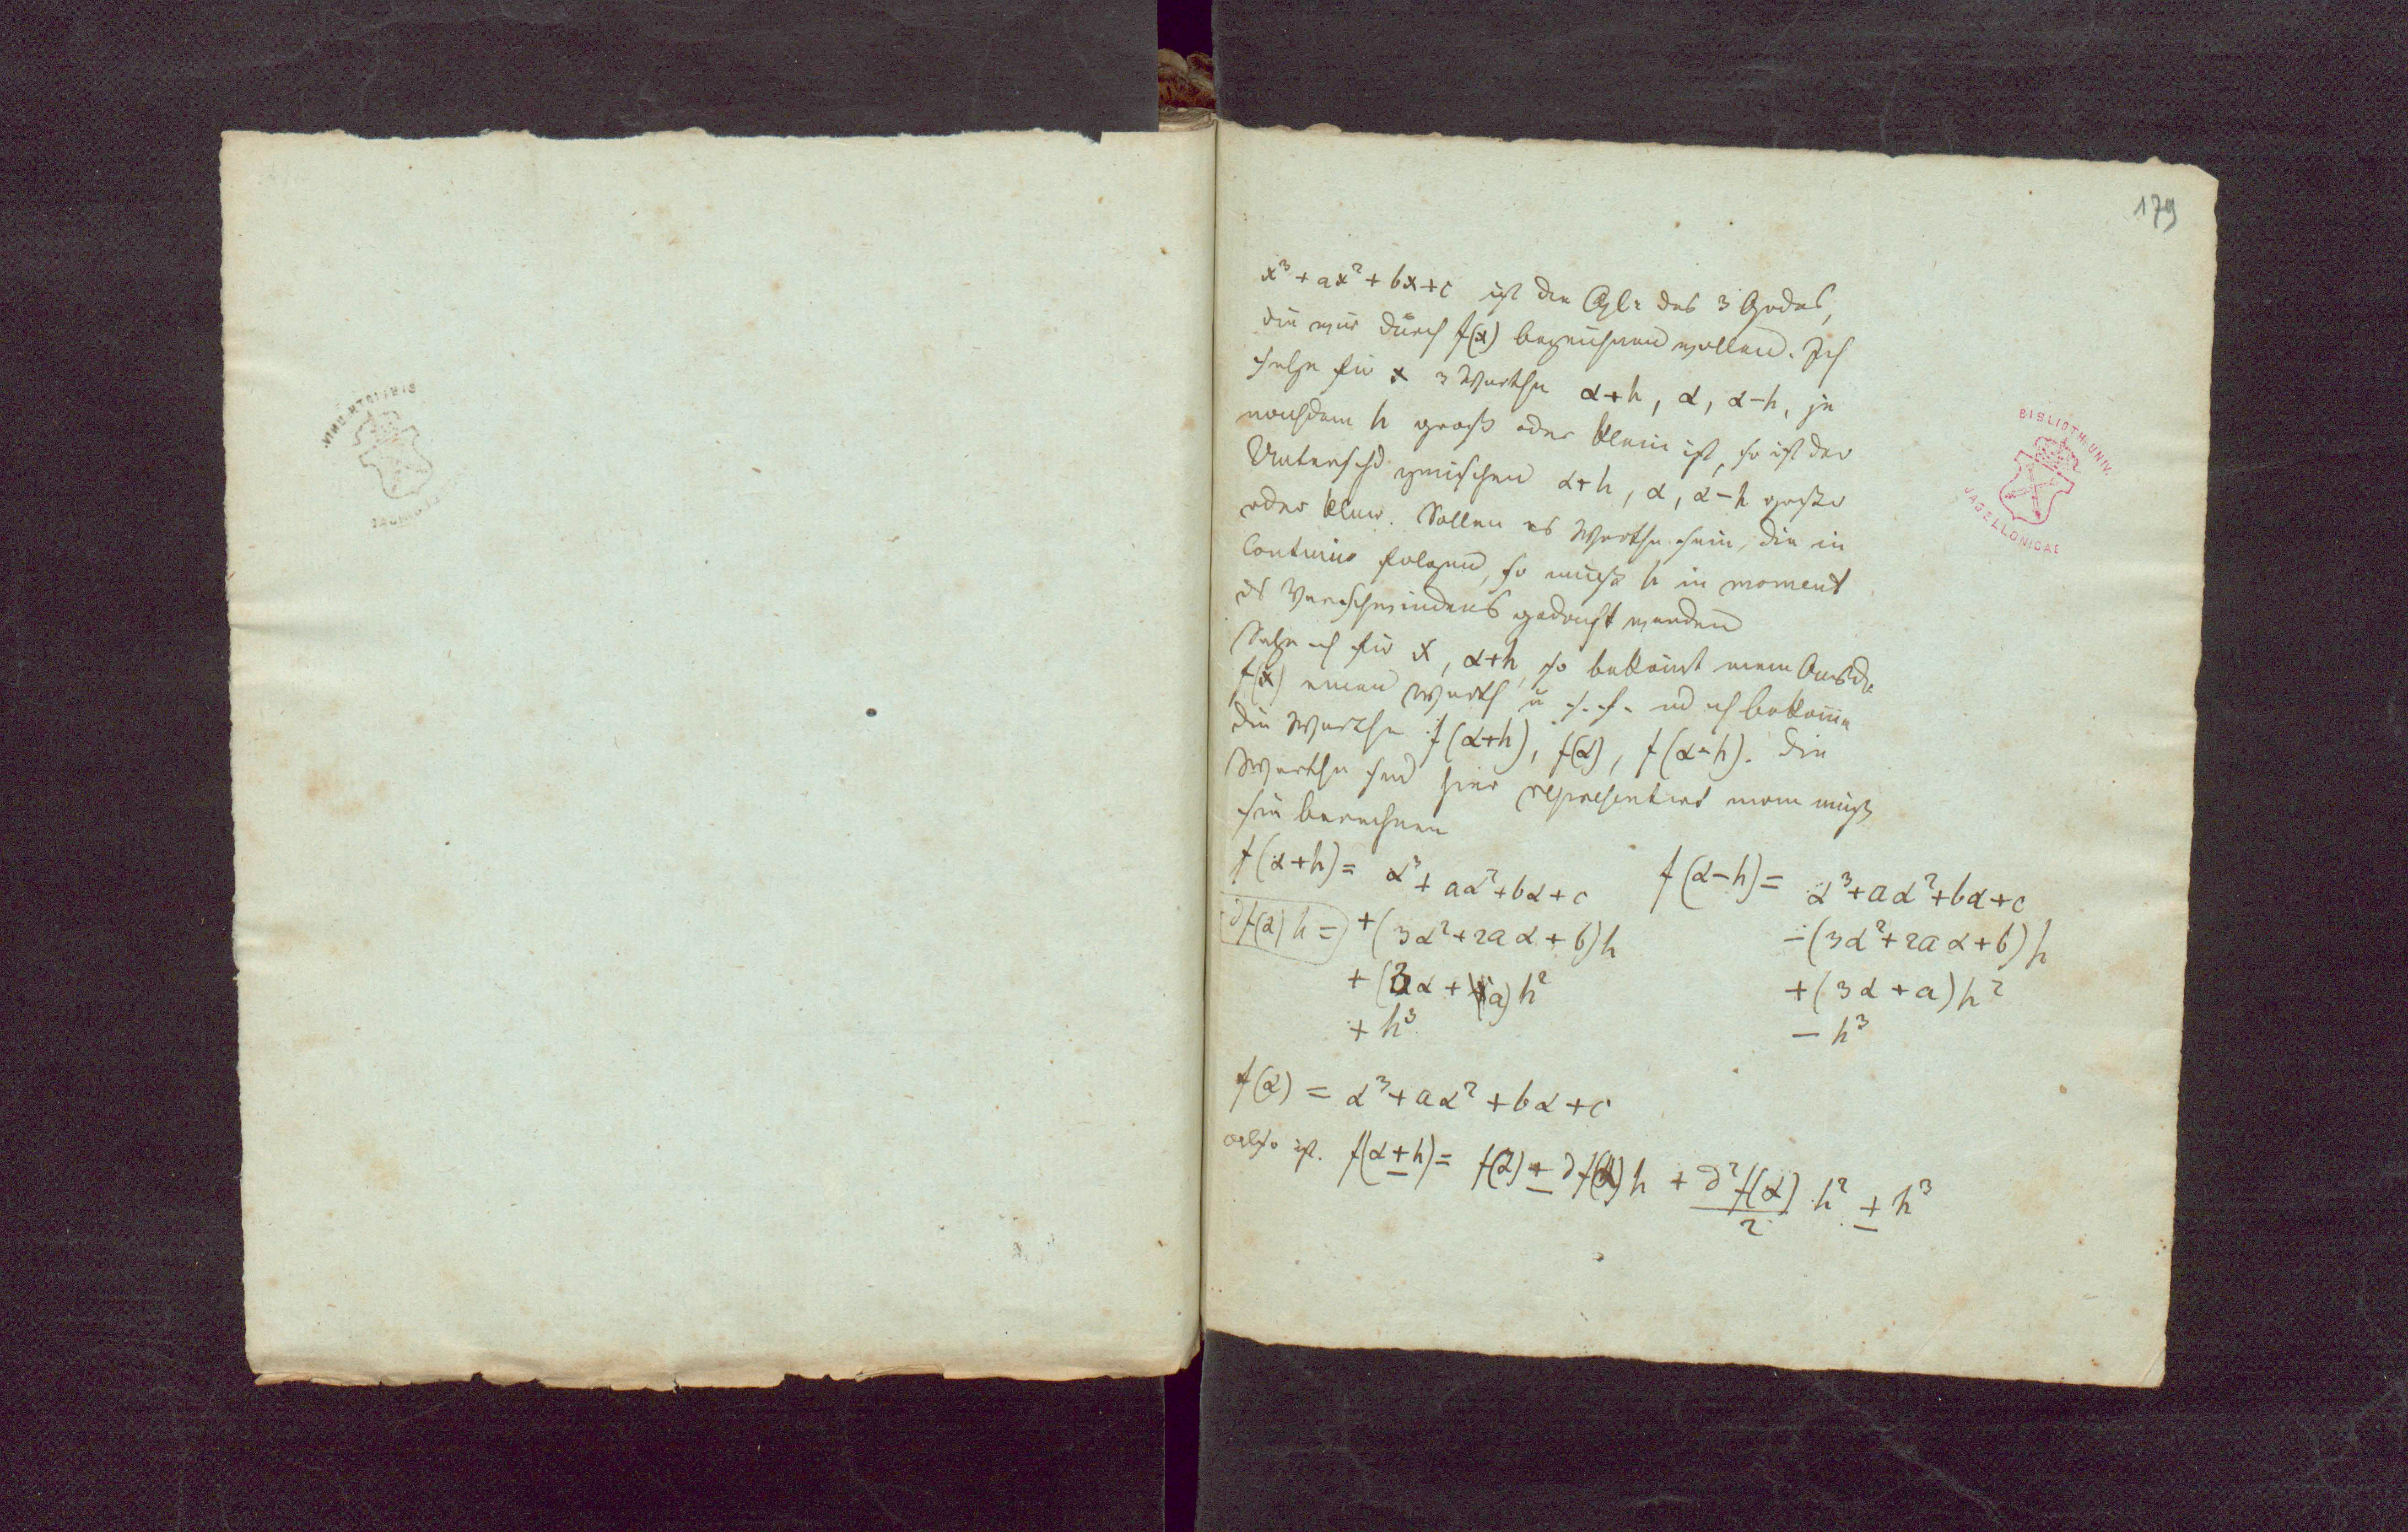 179
x³ + ax² + bx + c ist die Glr des 3 Grades,
die wir durch f(x) bezeichnen wollen. Ich
setze für x 3 Werthe α+h, α, α-h, je
nachdem h groß oder klein ist, so ist der
Untersch. zwischen α+h, α, α-h großer
oder kleiner. Sollen es Werthe sein, die in
Continuo folgen, so muß h in moment
ds Verschwindens gedacht werden
Setze ich für x, α+h, so bekomt mein Ausdr.
f(x) einen Werth u. s. f. ud ich bekome
die Werthe f(α+h), f(α), f(α-h). Die
Werthe sind hier representirt man muß
sie berechnen
f(α+h) = α³ + aα² + bα + c
∂f(α) h = + (3α² + 2aα + b)h
+ (3α + a)h²
+ h³
f(α-h) = α³ + aα² + bα + c
- (3α² + 2aα + b)h
+ (3α + a)h²
- h³
f(α) = α³ + aα² + bα + c
also ist. f(α ± h) = f(α) ± ∂f(α) h + ∂²f(α)/2 h² ± h³
BIBLIOTH. UNIV.
JAGELLONICAE